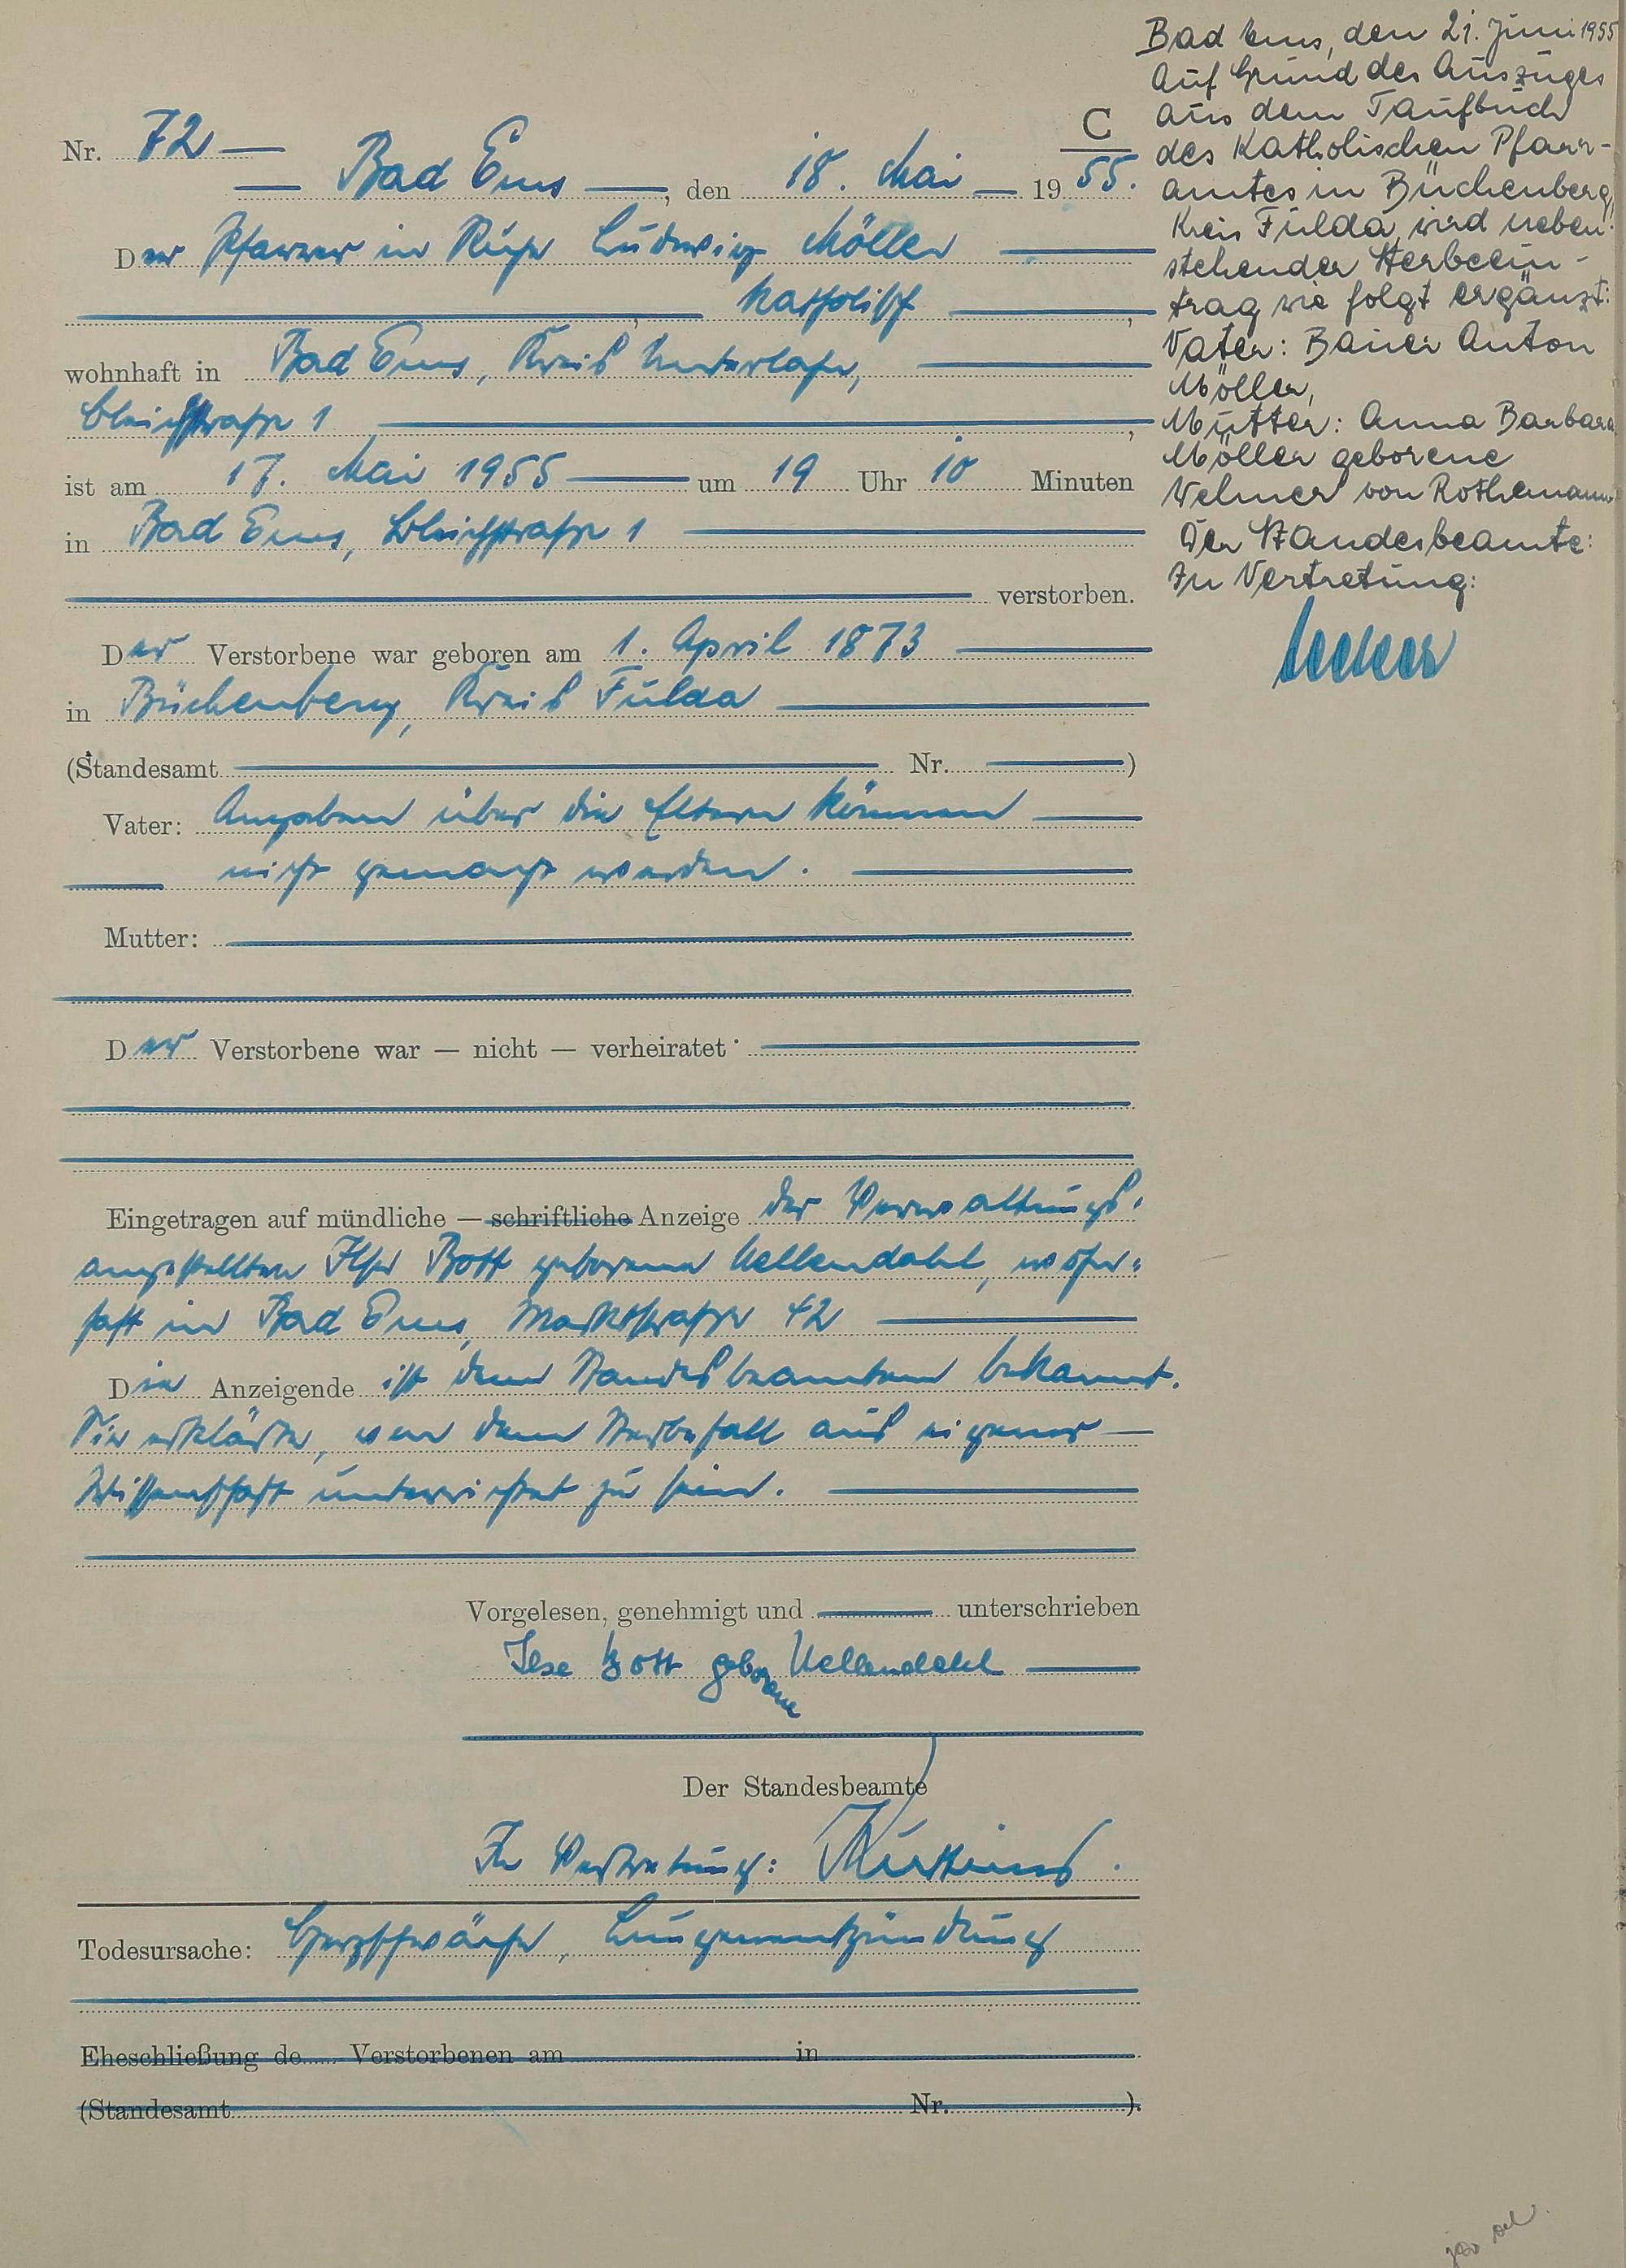 Nr. 72
C
Bad Ems, den 18. Mai 1955.
Der Pfarrer in Ruhe Ludwig Möller
katholisch,
wohnhaft in Bad Ems, Kreis Unterlahn,
Bleichstraße 1,
ist am 17. Mai 1955 um 19 Uhr 10 Minuten
in Bad Ems, Bleichstraße 1
verstorben.
Der Verstorbene war geboren am 1. April 1873
in Büchenberg, Kreis Fulda
(Standesamt Nr. )
Vater: Angaben über die Eltern können
nicht gemacht werden.
Mutter:
Der Verstorbene war — nicht — verheiratet
Eingetragen auf mündliche — schriftliche Anzeige der Verwaltungs-
angestellten Ilse Bott geborene Uellendahl, wohn-
haft in Bad Ems, Marktstraße 42
Die Anzeigende ist dem Standesbeamten bekannt.
Sie erklärte, von dem Sterbefall aus eigener
Wissenschaft unterrichtet zu sein.
Vorgelesen, genehmigt und unterschrieben
Ilse Bott geborene Uellendahl
Der Standesbeamte
In Vertretung:
Todesursache: Herzschwäche, Lungenentzündung
Eheschließung de Verstorbenen am in
(Standesamt Nr. ).
Bad Ems, den 21. Juni 1955
Auf Grund des Auszuges
aus dem Taufbuch
des Katholischen Pfarr-
amtes in Büchenberg,
Kreis Fulda, wird neben-
stehender Sterbeein-
trag wie folgt ergänzt:
Vater: Bauer Anton
Möller,
Mutter: Anna Barbara
Möller geborene
von Rothemann
Der Standesbeamte:
In Vertretung: